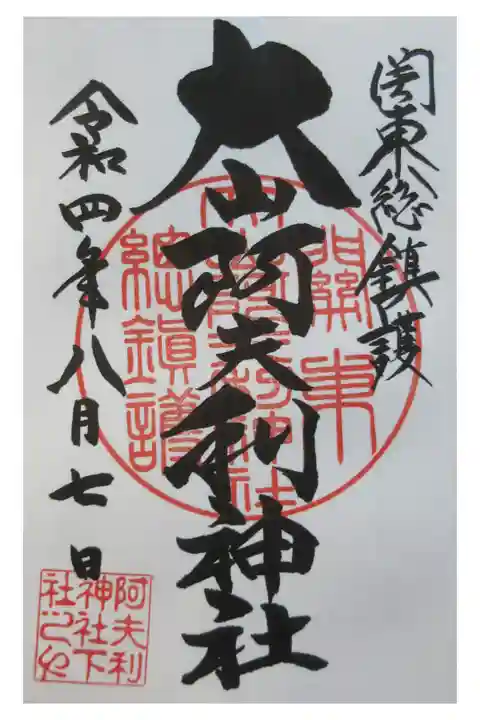 関東総鎮護
大山阿夫利神社
令和四年八月七日
關東
阿夫利神社
總鎮護
阿夫利
神社下
社之印